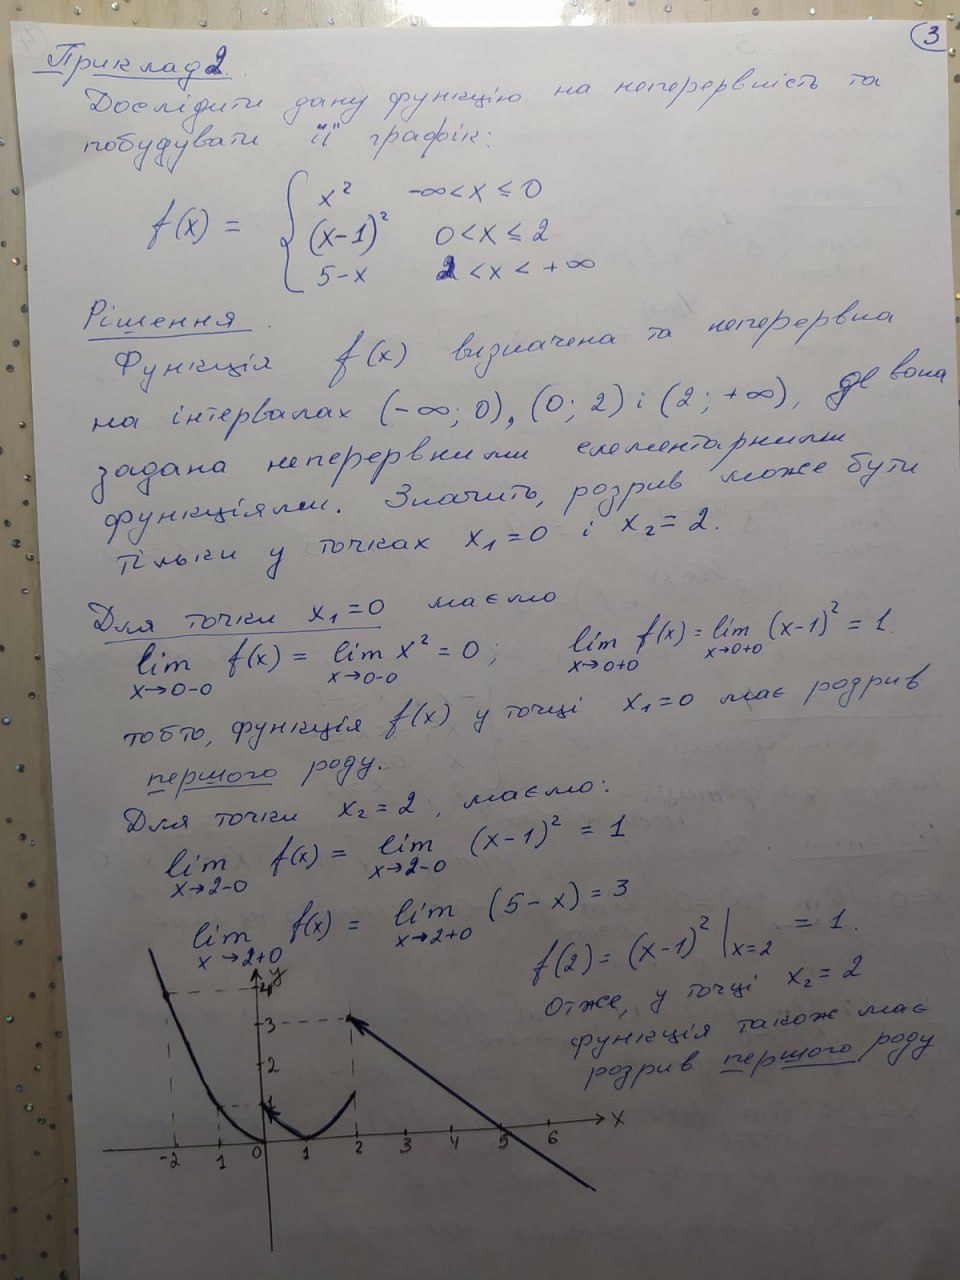 3
Приклад 2.
Дослідити дану функцію на неперервність та
побудувати її графік:
f(x) = { x² -∞ < x ≤ 0
(x-1)² 0 < x ≤ 2
5-x 2 < x < +∞
Рішення.
Функція f(x) визначена та неперервна
на інтервалах (-∞; 0), (0; 2) і (2; +∞), де вона
задана неперервними елементарними
функціями. Значить, розрив може бути
тільки у точках x₁=0 і x₂=2.
Для точки x₁=0 маємо
lim x→0-0 f(x) = lim x→0-0 x² = 0; lim x→0+0 f(x) = lim x→0+0 (x-1)² = 1.
тобто, функція f(x) у точці x₁=0 має розрив
першого роду.
Для точки x₂=2, маємо:
lim x→2-0 f(x) = lim x→2-0 (x-1)² = 1
lim x→2+0 f(x) = lim x→2+0 (5-x) = 3
f(2) = (x-1)² |x=2 = 1.
Отже, у точці x₂=2
функція також має
розрив першого роду
y
4
3
2
1
-2 1 0 1 2 3 4 5 6 x